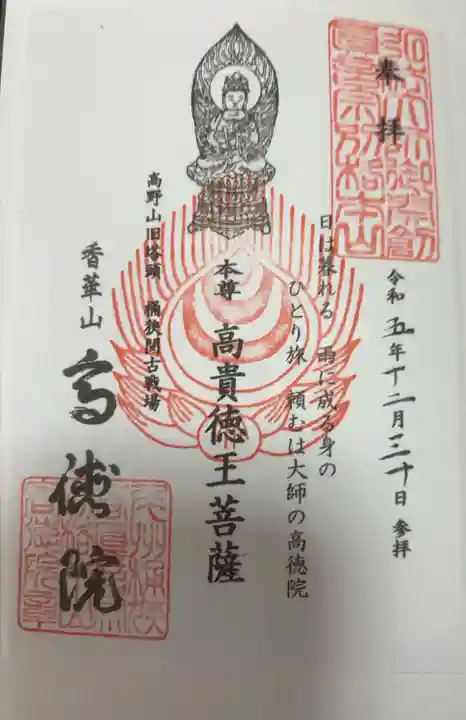 奉拝
令和五年十二月三十日 参拝
日は暮れる 雨に成る身の
ひとり旅 頼むは大師の高徳院
本尊 高貴徳王菩薩
高野山旧塔頭 桶狭間古戦場
香華山 高徳院